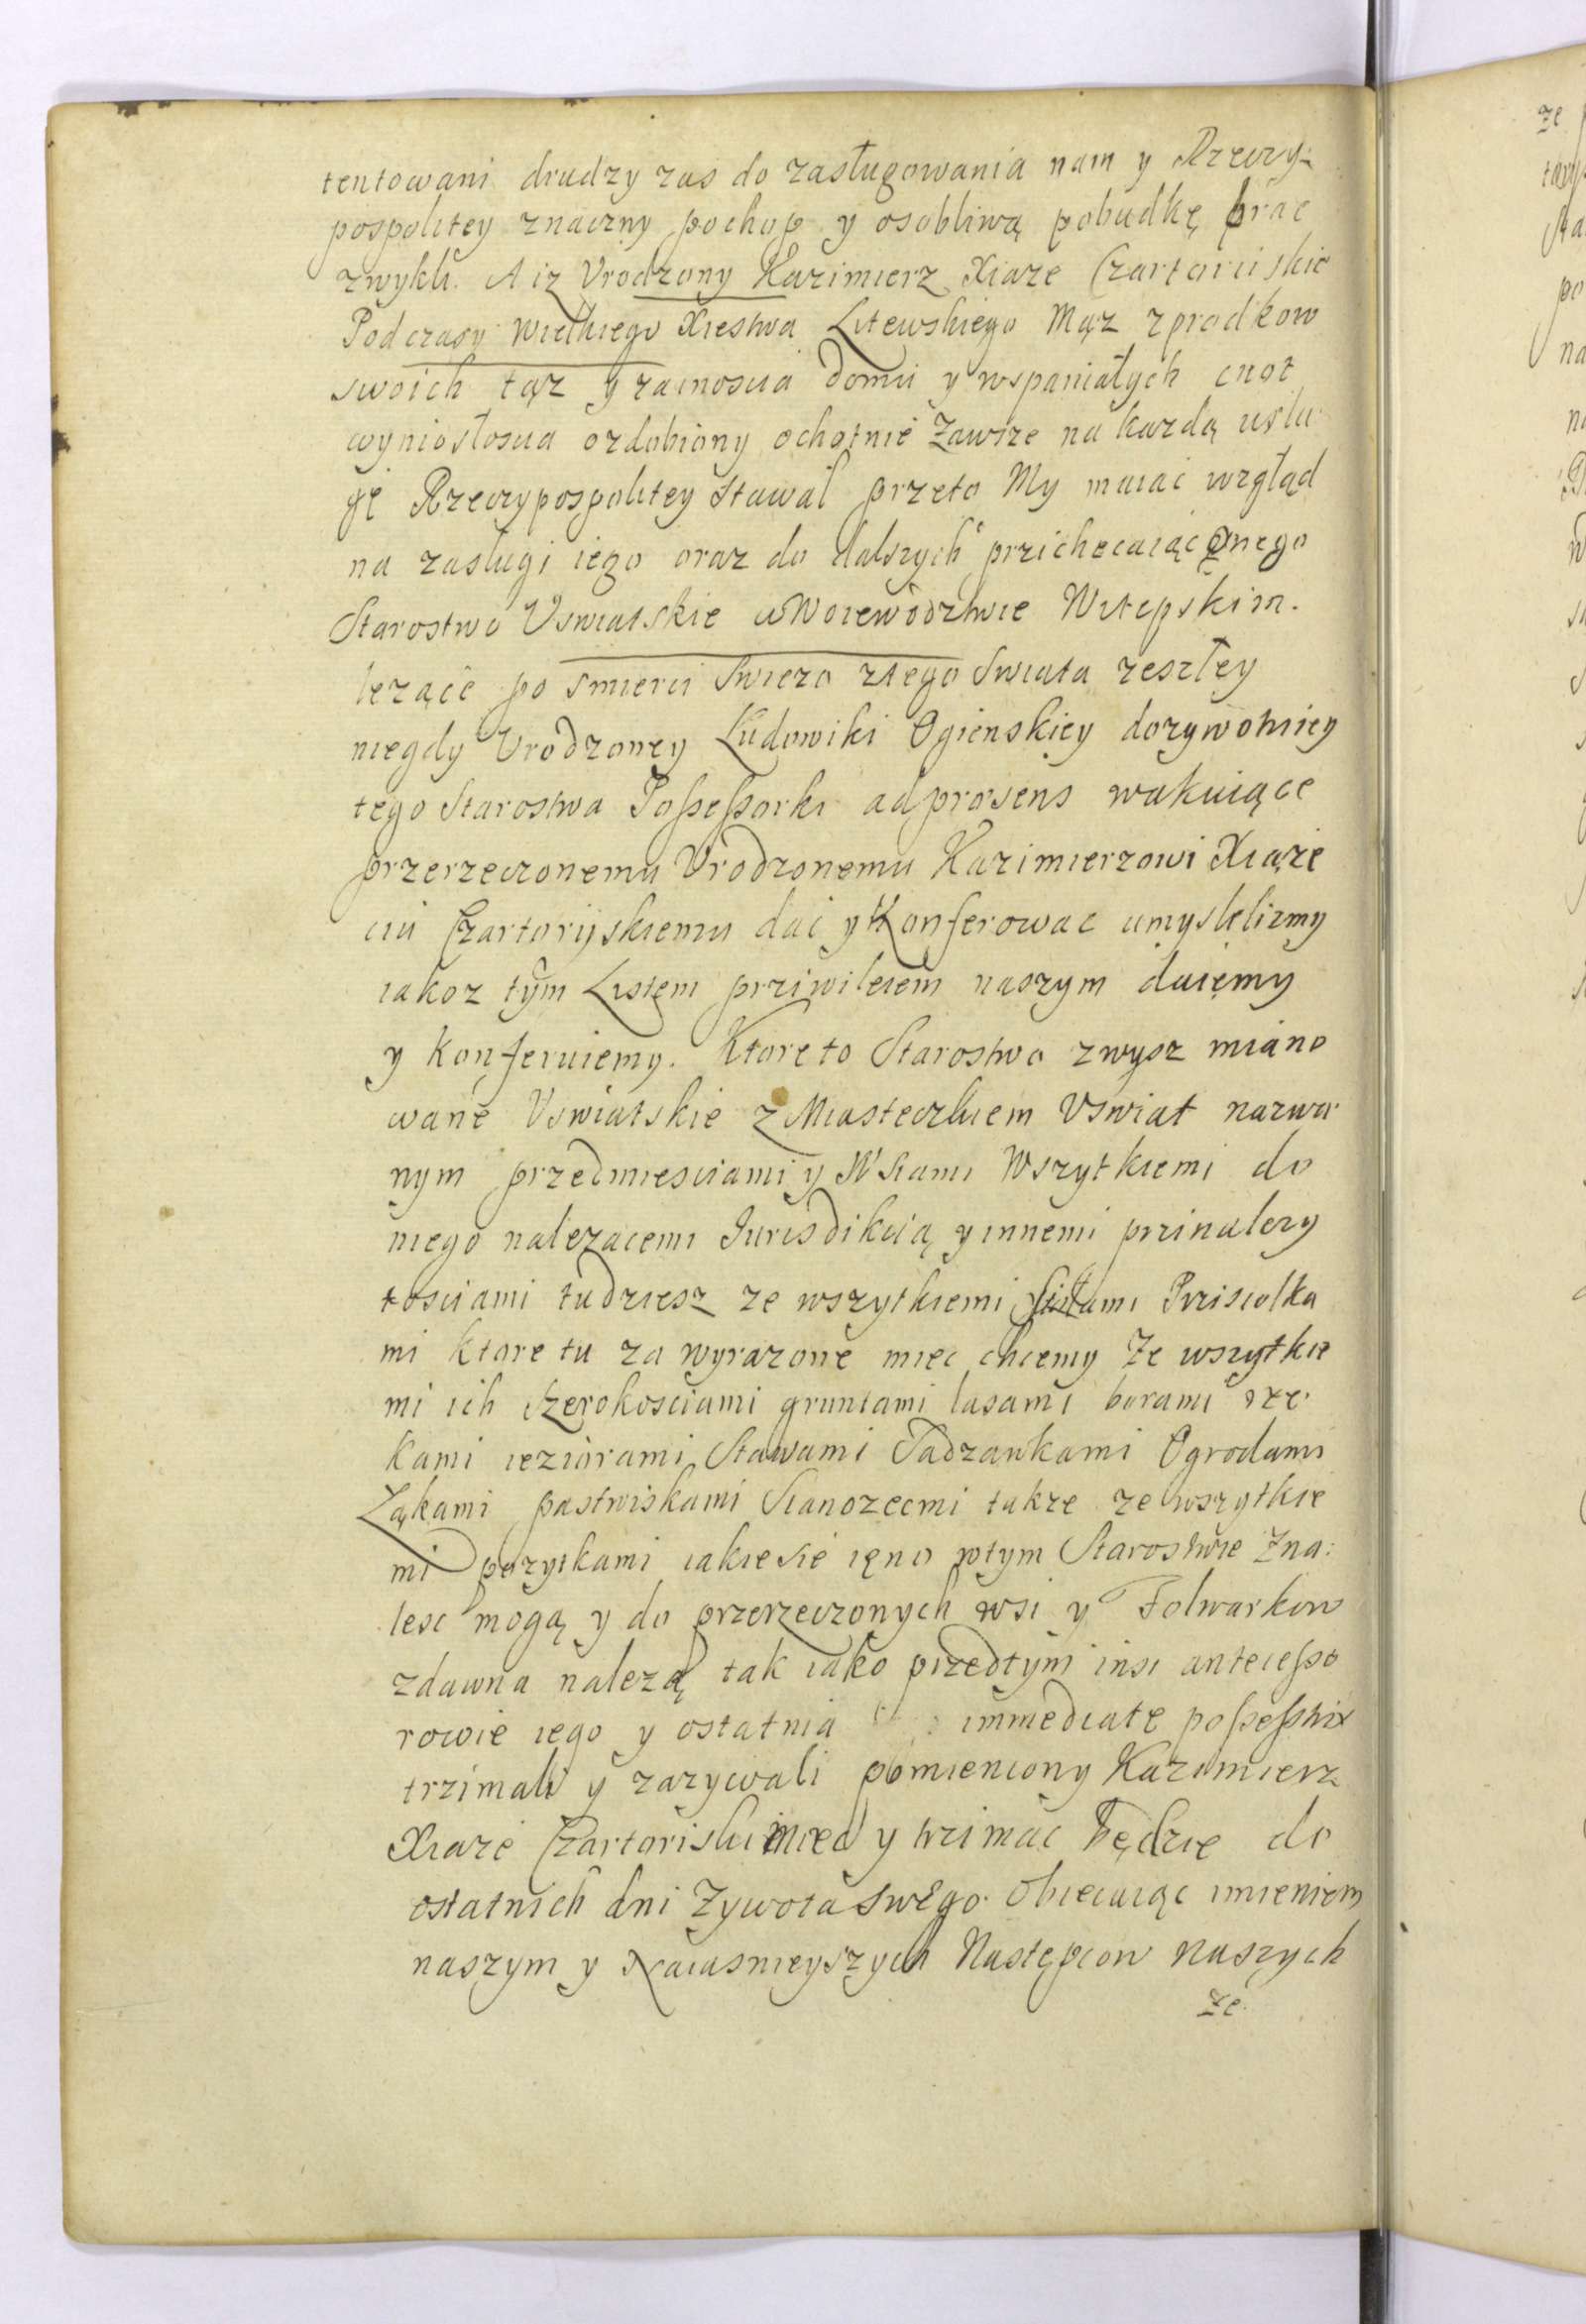 tentowani drudzy zas do zasługowania nam y Rzeczy-
pospolitey znaczny pochop y osobliwą pobudkę brac
zwykli. A iz Vrodzony Kazimierz Xiaze Czartoriiskie
Podczasy Wielkiego Xiestwa Litewskiego Mąz z prodkow
swoich tąz y zacnoscia domu y wspaniałych cnot
wyniosłoscia ozdobiony ochotnie Zawsze na kazdą usłu-
gę Rzeczypospolitey stawał przeto My maiąc wzgląd
na zasługi iego oraz do dalszych przichecaiąc onego
Starostwo Vswiatskie w Woiewodztwie Witepskim.
lezące po smierci swiezo z tego Swiata zeszłey
niegdy Vrodzoney Ludowiki Ogienskiey dozywotniey
tego Starostwa Possessorki ad præsens wakuiące
przerzeczonemu Vrodzonemu Kazimierzowi Xiąże
ciu Czartoryskiemu dac y Konferowac umyslelizmy
iakoz tym Listem priwileiem naszym daięmy
y Konferuiemy. Ktore to Starostwo zwysz miano
wane Vswiatskie z Miasteczkiem Vswiat nazwa-
nym przedmiesciami y W'siami Wszytkiemi do
niego nalezacemi Jurisdikcią y innemi prinalezy
tosciami tudziesz ze wszytkiemi Prisiolka
mi ktore tu za wyrazone miec chcemy Ze wszytkie
mi ich szerokosciami gruntami lasami borami rze-
kami ieziorami Stawami Sadzawkami Ogrodami
Łąkami pastwiskami Sianozecmi takze ze wszytkie
mi pozytkami iakie sie ięno w tym Starostwie Zna:
lesc mogą y do przerzeczonych wsi y Folwarkow
zdawna nalezą tak iako przedtym insi antecesso
rowie iego y ostatnia immediate possestrix
trzimali y zazywali pomieniony Kazimierz
Xiaze Czartoriski miec y trzimac Będzie do
ostatnich dni Zywota swego. Obiecuiąc imieniem
naszym y Naiasnieyszych Następcow naszych
ze